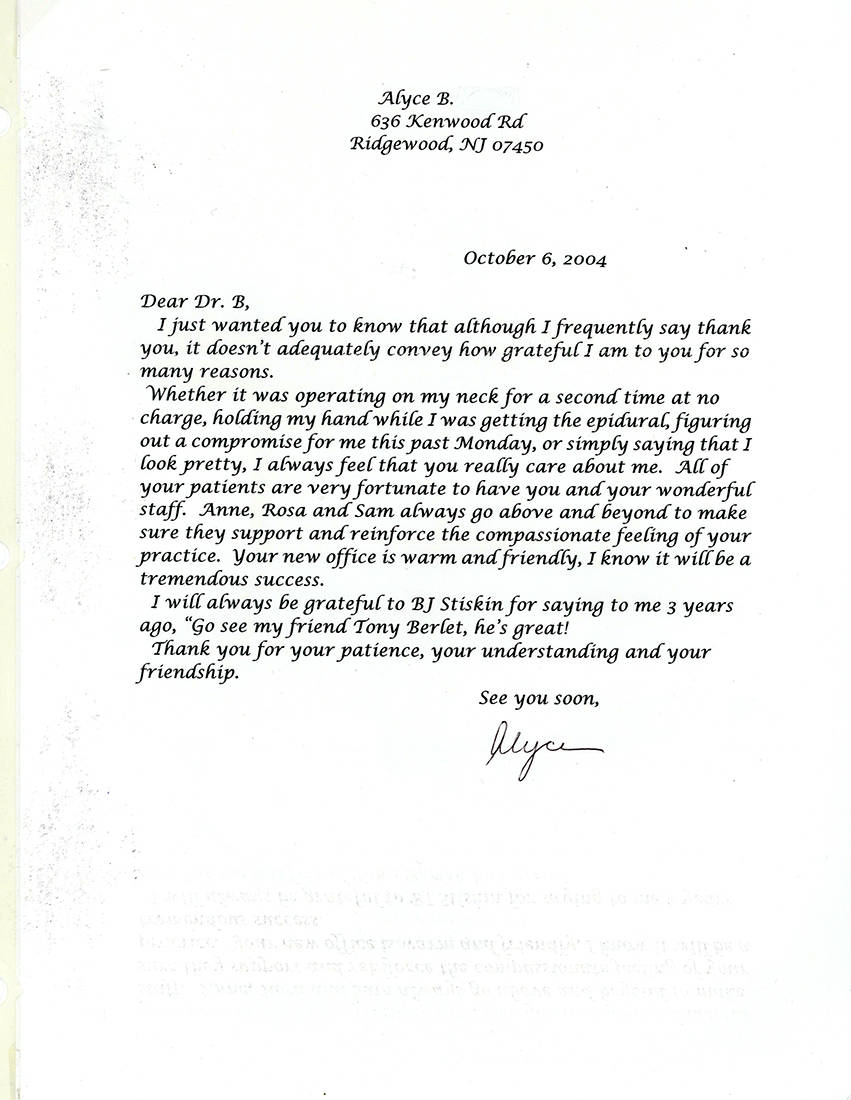 Alyce B.
636 Kenwood Rd
Ridgewood, NJ 07450
October 6, 2004
Dear Dr. B,
I just wanted you to know that although I frequently say thank
you, it doesn't adequately convey how grateful I am to you for so
many reasons.
Whether it was operating on my neck for a second time at no
charge, holding my hand while I was getting the epidural, figuring
out a compromise for me this past Monday, or simply saying that I
look pretty, I always feel that you really care about me. All of
your patients are very fortunate to have you and your wonderful
staff. Anne, Rosa and Sam always go above and beyond to make
sure they support and reinforce the compassionate feeling of your
practice. Your new office is warm and friendly, I know it will be a
tremendous success.
I will always be grateful to BJ Stiskin for saying to me 3 years
ago, "Go see my friend Tony Berlet, he's great!
Thank you for your patience, your understanding and your
friendship.
See you soon,
Alyce